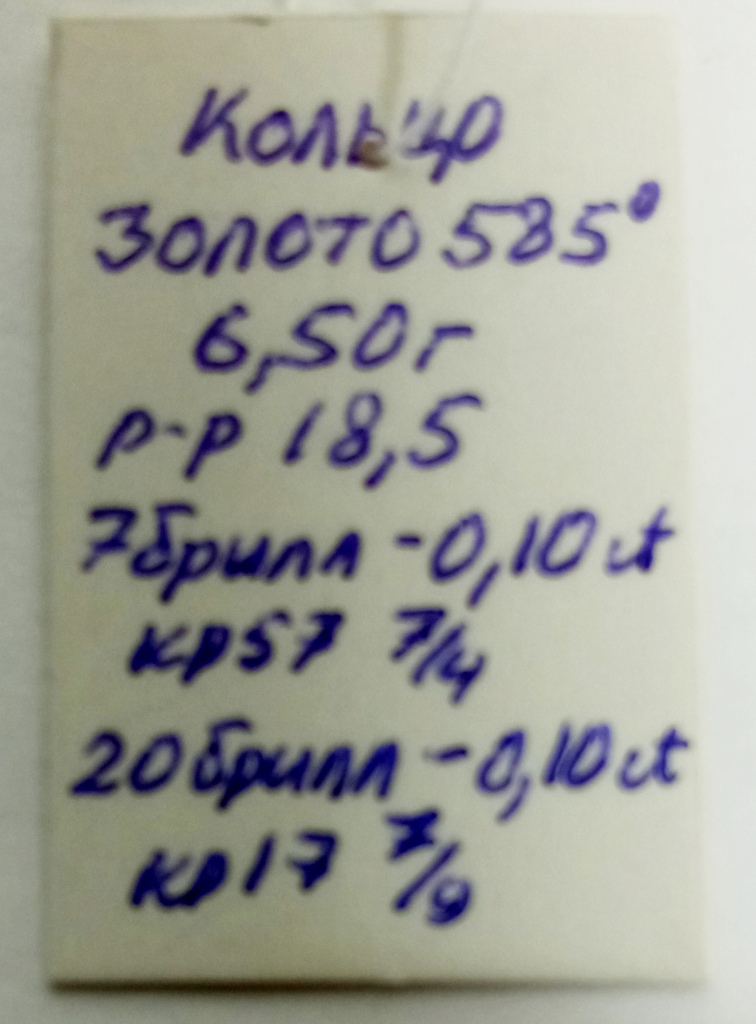 Кольцо
Золото 585°
6,50г
р-р 18,5
7брилл -0,10 ct
кр57 7/4
20брилл -0,10 ct
кр17 7/9